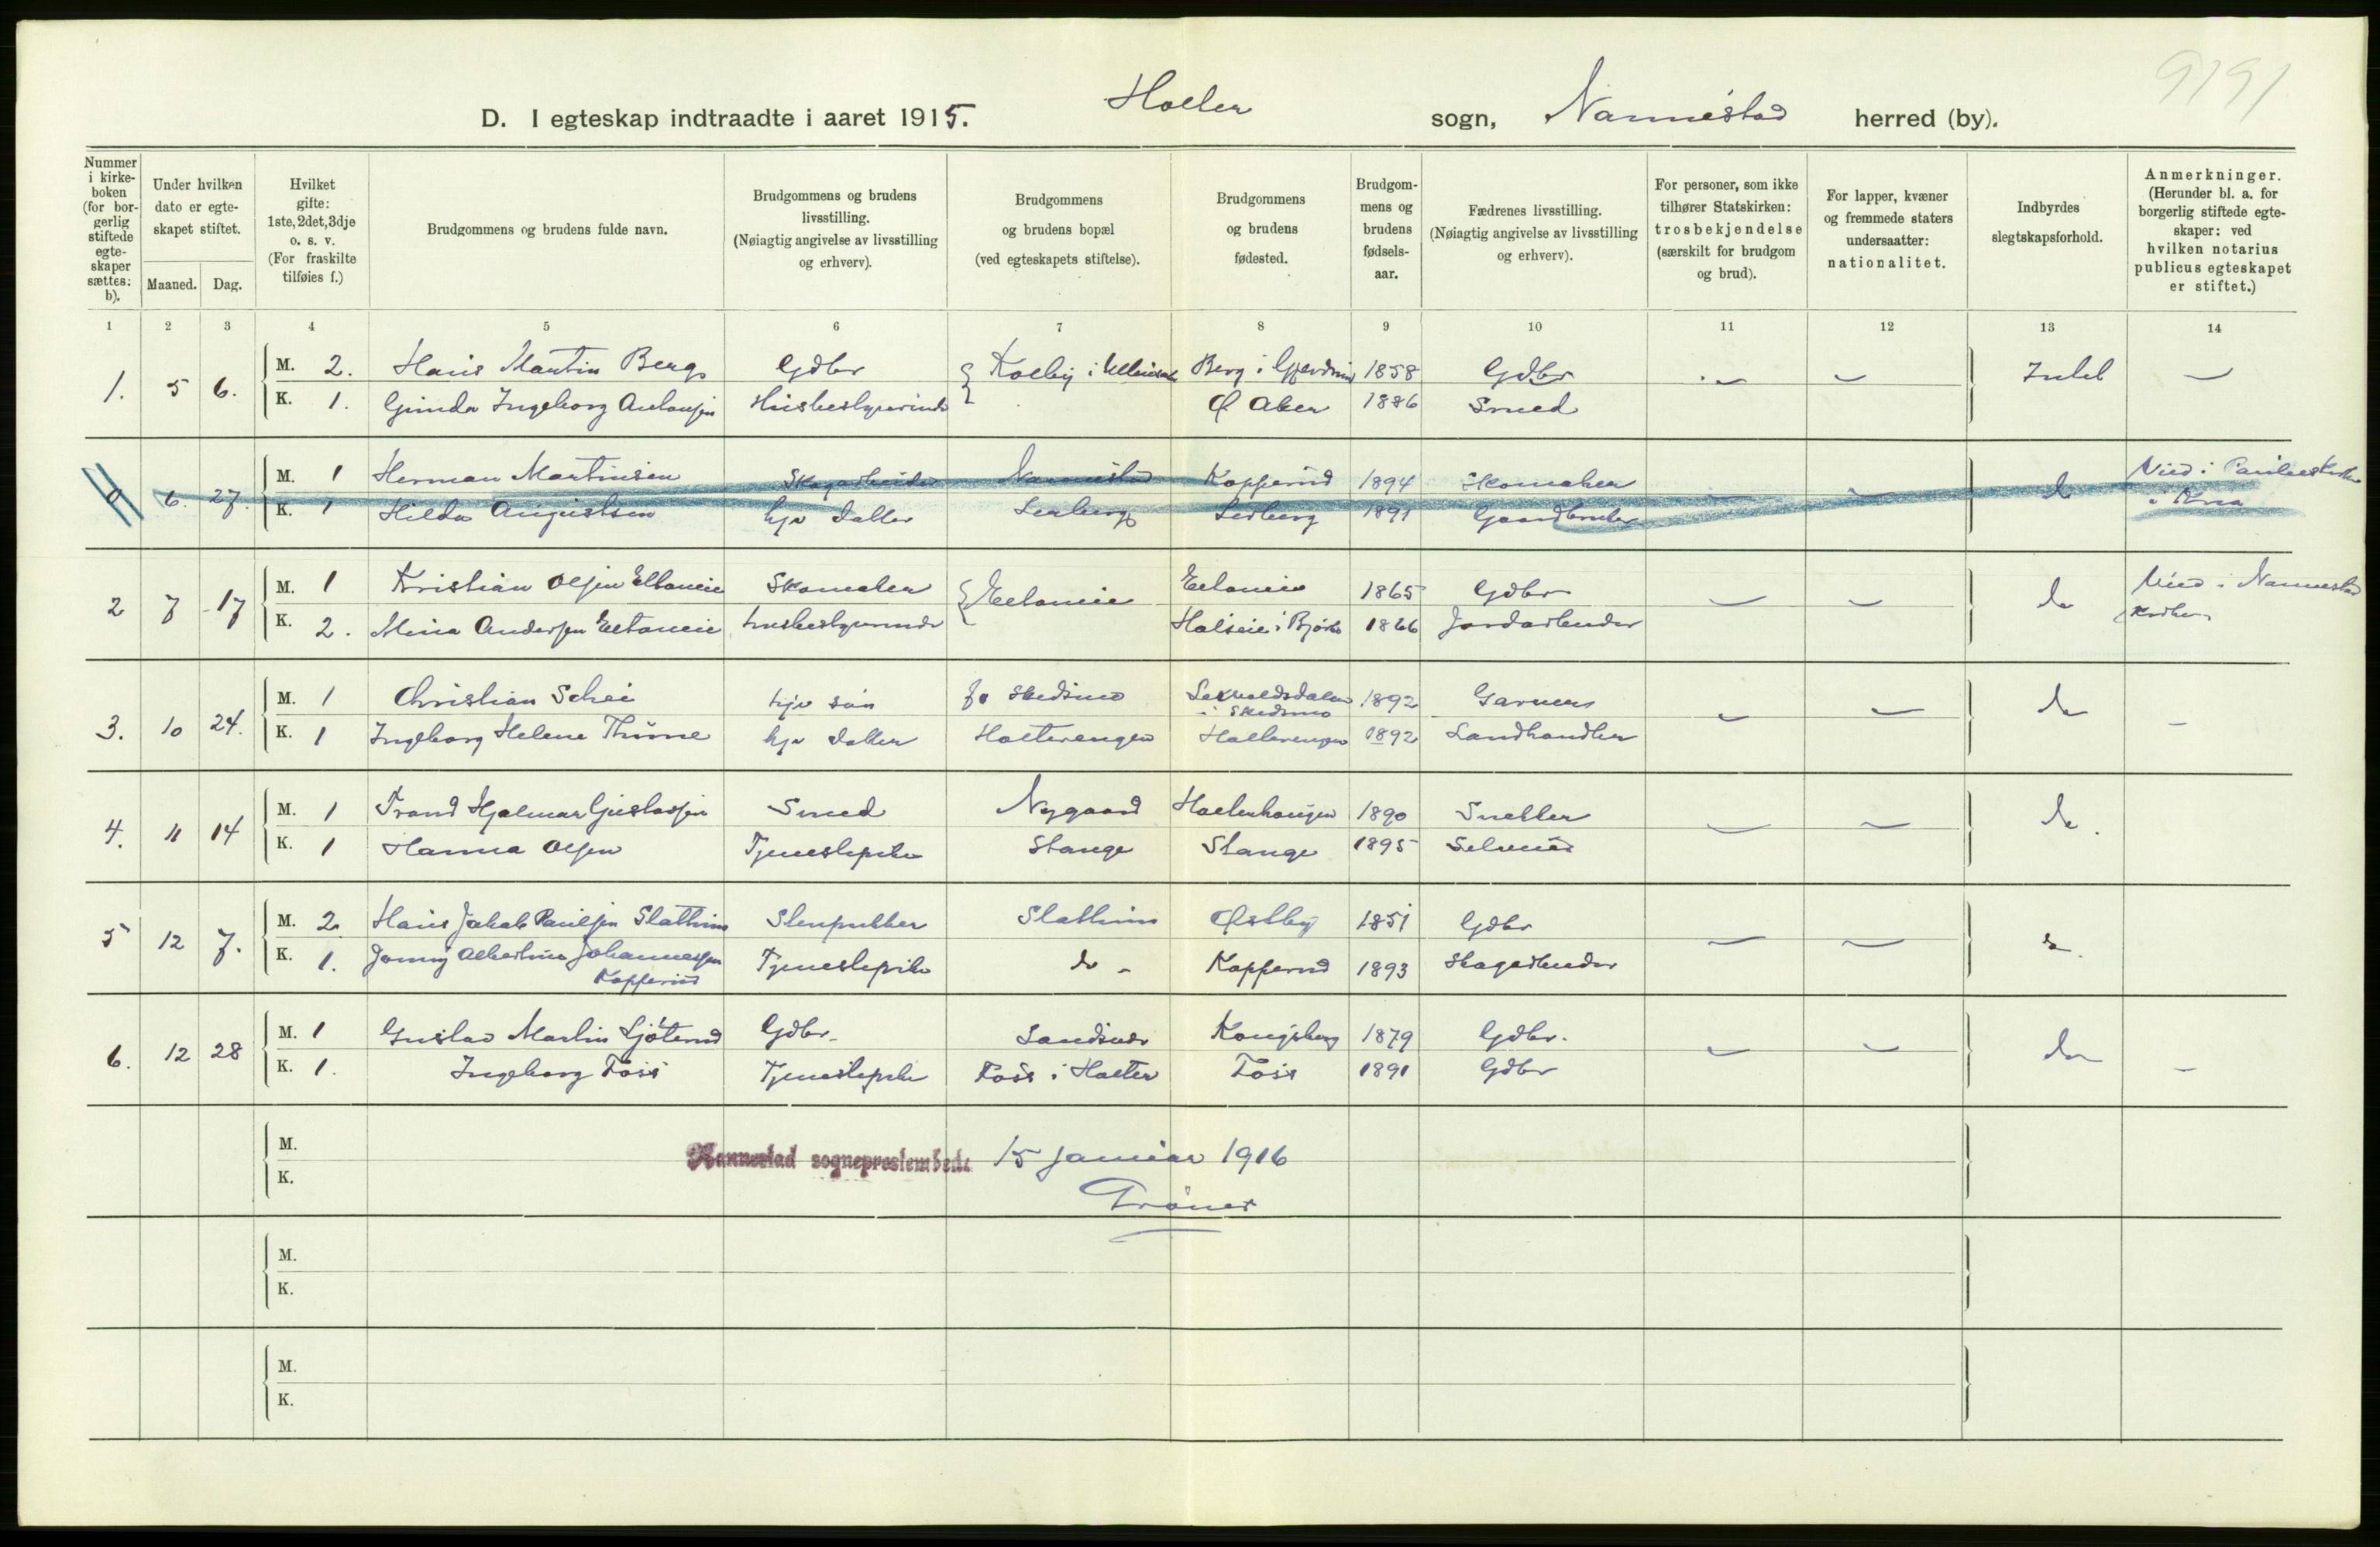 9191
D. I egteskap indtraadte i aaret 1915. Holter sogn, Nannestad herred (by).
Nummer i kirkeboken (for borgerlig stiftede egteskaper sættes: b).
Under hvilken dato er egteskapet stiftet.
Maaned. Dag.
Hvilket gifte: 1ste, 2det, 3dje o. s. v. (For fraskilte tilføies f.)
Brudgommens og brudens fulde navn.
Brudgommens og brudens livsstilling. (Nøiagtig angivelse av livsstilling og erhverv).
Brudgommens og brudens bopæl (ved egteskapets stiftelse).
Brudgommens og brudens fødested.
Brudgommens og brudens fødselsaar.
Fædrenes livsstilling. (Nøiagtig angivelse av livsstilling og erhverv).
For personer, som ikke tilhører Statskirken: trosbekjendelse (særskilt for brudgom og brud).
For lapper, kvæner og fremmede staters undersaatter: nationalitet.
Indbyrdes slegtskapsforhold.
Anmerkninger. (Herunder bl. a. for borgerlig stiftede egteskaper: ved hvilken notarius publicus egteskapet er stiftet.)
1 2 3 4 5 6 7 8 9 10 11 12 13 14
1. 5 6. M. 2. Hans Martin Berg Gdbr Kolby i Ullensaker Berg i Gjerdrum 1858 Gdbr Intet
K. 1. Gunda Ingeborg Antonsen Husbestyrerinde Ø Aker 1886 Smed
0 6. 27. M. 1 Herman Martinsen Skogarbeider Nannestad Kopperud 1894 Skomaker do Viet i Pauluskirke
K. 1 Hilda Augustsen hjv datter Leeberg 1891 Gaardbruker i Kria
2 7 17 M. 1 Kristian Olsen Eltoneie Skomaker Eltoneie Eltoneie 1865 Gdbr do Viet i Nannestad
K. 2. Mina Andersen Eltoneie husbestyrerinde Holseie i Bjørke 1866 Jordarbeider Kirke
3. 10 24. M. 1 Christian Schei hjv søn Skedsmo i Skedsmo 1892 Garver do
K. 1 Ingeborg Helene Thune hjv datter Holterengen Holterengen 1892 Landhandler
4. 11 14 M. 1 Trond Hjalmar Gustavsen Smed Nygaard Holterhaugen 1890 Snekker do.
K. 1 Hanna Olsen Tjenestepike Stange Stange 1895 Selveier
5 12 7. M. 2. Hans Jakob Paulsen Slattum Stenpukker Slattum Østby 1851 Gdbr do.
K. 1. Jenny Albertine Johannessen Kopperud Tjenestepike do - Kopperud 1893 Skogarbeider
6. 12 28 M. 1 Gustav Martin Sjøterud Gdbr. Sandsnes Kongsberg 1879 Gdbr. do
K. 1. Ingeborg Foss Tjenestepike Foss i Holter Foss 1891 Gdbr
M.
Nannestad sogneprestembede 15 januar 1916
K.
M.
K.
M.
K.